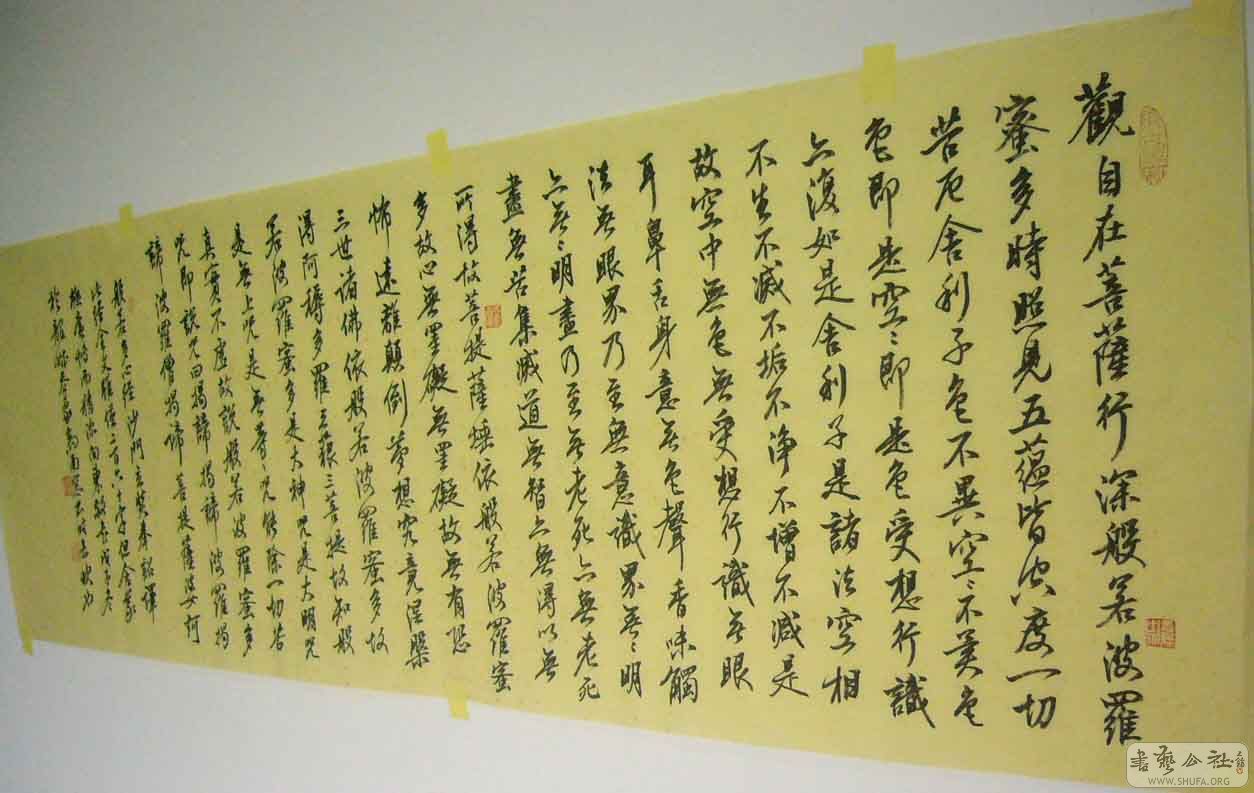 觀自在菩薩行深般若波羅
蜜多時照見五蘊皆空度一切
苦厄舍利子色不異空〻不異色
色即是空〻即是色受想行識
亦復如是舍利子是諸法空相
不生不滅不垢不淨不增不減是
故空中無色無受想行識無眼
耳鼻舌身意無色聲香味觸
法無眼界乃至無意識界無〻明
亦無〻明盡乃至無老死亦無老死
盡無苦集滅道無智亦無得以無
所得故菩提薩埵依般若波羅蜜
多故心無罣礙無罣礙故無有恐
怖遠離顛倒夢想究竟涅槃
三世諸佛依般若波羅蜜多故
得阿耨多羅三藐三菩提故知般
若波羅蜜多是大神咒是大明咒
是無上咒是無等〻咒能除一切苦
真實不虛故說般若波羅蜜多
咒即說咒曰揭諦揭諦波羅揭
諦波羅僧揭諦菩提薩婆訶
般若多心經沙門玄奘奉詔譯
書藝公社
WWW.SHUFA.ORG